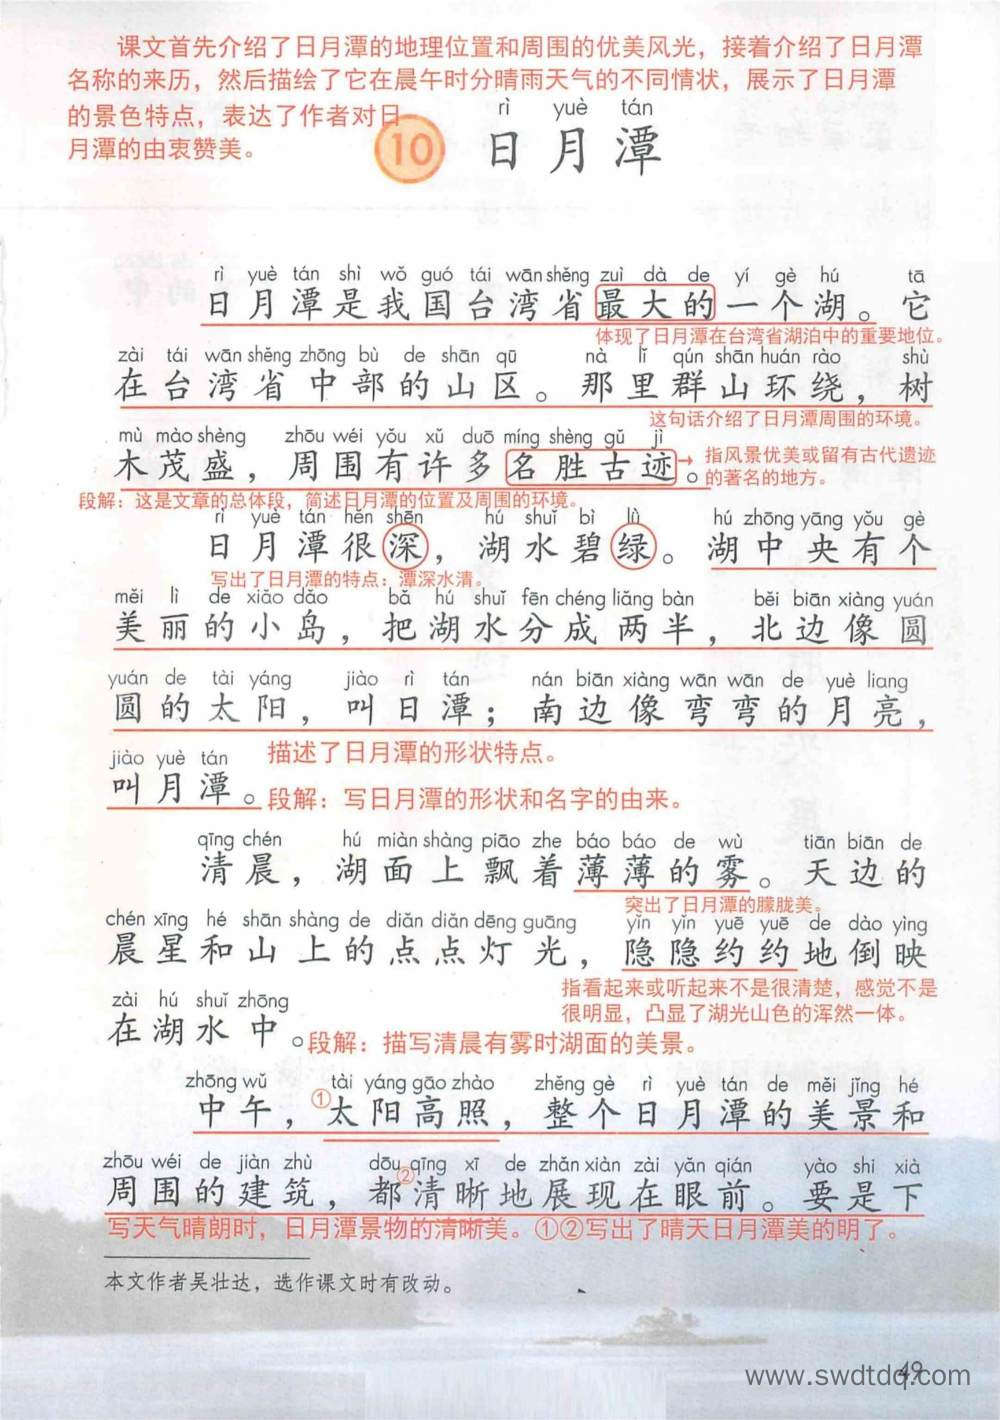 课文首先介绍了日月潭的地理位置和周围的优美风光，接着介绍了日月潭
名称的来历，然后描绘了它在晨午时分晴雨天气的不同情状，展示了日月潭
的景色特点，表达了作者对日
月潭的由衷赞美。
rì yuè tán
10 日月潭
rì yuè tán shì wǒ guó tái wān shěng zuì dà de yí gè hú tā
日月潭是我国台湾省最大的一个湖。它
体现了日月潭在台湾省湖泊中的重要地位。
zài tái wān shěng zhōng bù de shān qū nà lǐ qún shān huán rào shù
在台湾省中部的山区。那里群山环绕，树
这句话介绍了日月潭周围的环境。
mù mào shèng zhōu wéi yǒu xǔ duō míng shèng gǔ jì
木茂盛，周围有许多名胜古迹。
指风景优美或留有古代遗迹
的著名的地方。
段解：这是文章的总体段，简述日月潭的位置及周围的环境。
rì yuè tán hěn shēn hú shuǐ bì lǜ hú zhōng yāng yǒu gè
日月潭很深，湖水碧绿。湖中央有个
写出了日月潭的特点：潭深水清。
měi lì de xiǎo dǎo bǎ hú shuǐ fēn chéng liǎng bàn běi biān xiàng yuán
美丽的小岛，把湖水分成两半，北边像圆
yuán de tài yáng jiào rì tán nán biān xiàng wān wān de yuè liang
圆的太阳，叫日潭；南边像弯弯的月亮，
jiào yuè tán
叫月潭。
描述了日月潭的形状特点。
段解：写日月潭的形状和名字的由来。
qīng chén hú miàn shàng piāo zhe báo báo de wù tiān biān de
清晨，湖面上飘着薄薄的雾。天边的
突出了日月潭的朦胧美。
chén xīng hé shān shàng de diǎn diǎn dēng guāng yǐn yǐn yuē yuē de dào yìng
晨星和山上的点点灯光，隐隐约约地倒映
指看起来或听起来不是很清楚，感觉不是
很明显，凸显了湖光山色的浑然一体。
zài hú shuǐ zhōng
在湖水中。
段解：描写清晨有雾时湖面的美景。
zhōng wǔ tài yáng gāo zhào zhěng gè rì yuè tán de měi jǐng hé
中午，①太阳高照，整个日月潭的美景和
zhōu wéi de jiàn zhù dōu qīng xī de zhǎn xiàn zài yǎn qián yào shi xià
周围的建筑，都②清晰地展现在眼前。要是下
写天气晴朗时，日月潭景物的清晰美。①②写出了晴天日月潭美的明了。
本文作者吴壮达，选作课文时有改动。
49
www.swdtdq.com